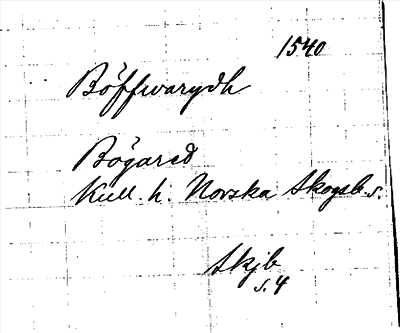 1540
Böffwarydh
Bögared
Kull. h. Norska Skogsb. s.
Skjb
s. 4